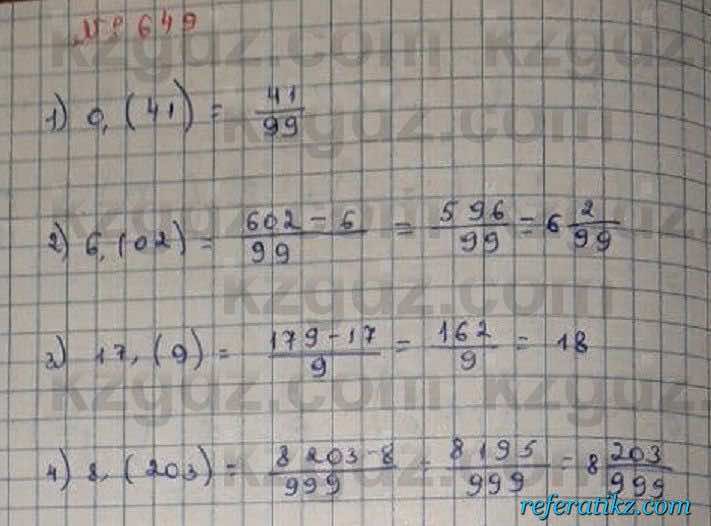 № 649
kzgdz.com
1) 0,(41) = 41/99
2) 6,(02) = 602-6/99 = 596/99 = 6 2/99
3) 17,(9) = 179-17/9 = 162/9 = 18
4) 8,(203) = 8203-8/999 = 8195/999 = 8 203/999
referatikz.com